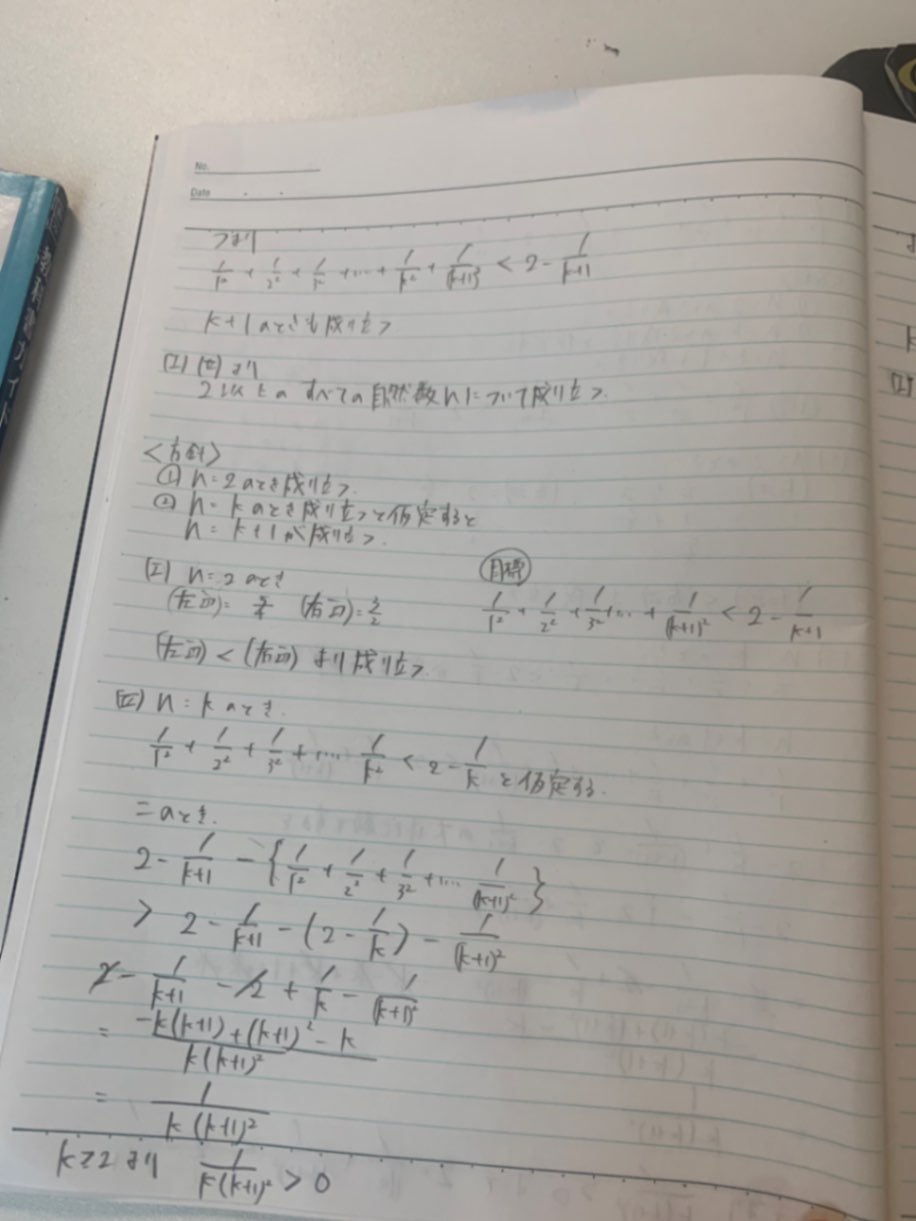 No.
Date
つまり
1/1² + 1/2² + 1/3² + .... + 1/k² + 1/(k+1)² < 2 - 1/k+1
k+1のときも成り立つ
(I) (II) より
2以上の すべての自然数nについて成り立つ.
<方針>
① n=2のとき成り立つ.
② n=kのとき成り立つと仮定すると
n=k+1が成り立つ.
(I) n=2のとき
(左辺)= 5/4 (右辺)= 3/2
(左辺) < (右辺) より成り立つ.
目標
1/1² + 1/2² + 1/3² + ... + 1/(k+1)² < 2 - 1/k+1
(II) n=kのとき.
1/1² + 1/2² + 1/3² + .... 1/k² < 2 - 1/k と仮定する.
このとき.
2 - 1/k+1 - { 1/1² + 1/2² + 1/3² + .... 1/(k+1)² }
> 2 - 1/k+1 - (2 - 1/k) - 1/(k+1)²
2 - 1/k+1 - 2 + 1/k - 1/(k+1)²
= -k(k+1) + (k+1)² - k / k(k+1)²
= 1 / k(k+1)²
k≧2より 1/k(k+1)² > 0